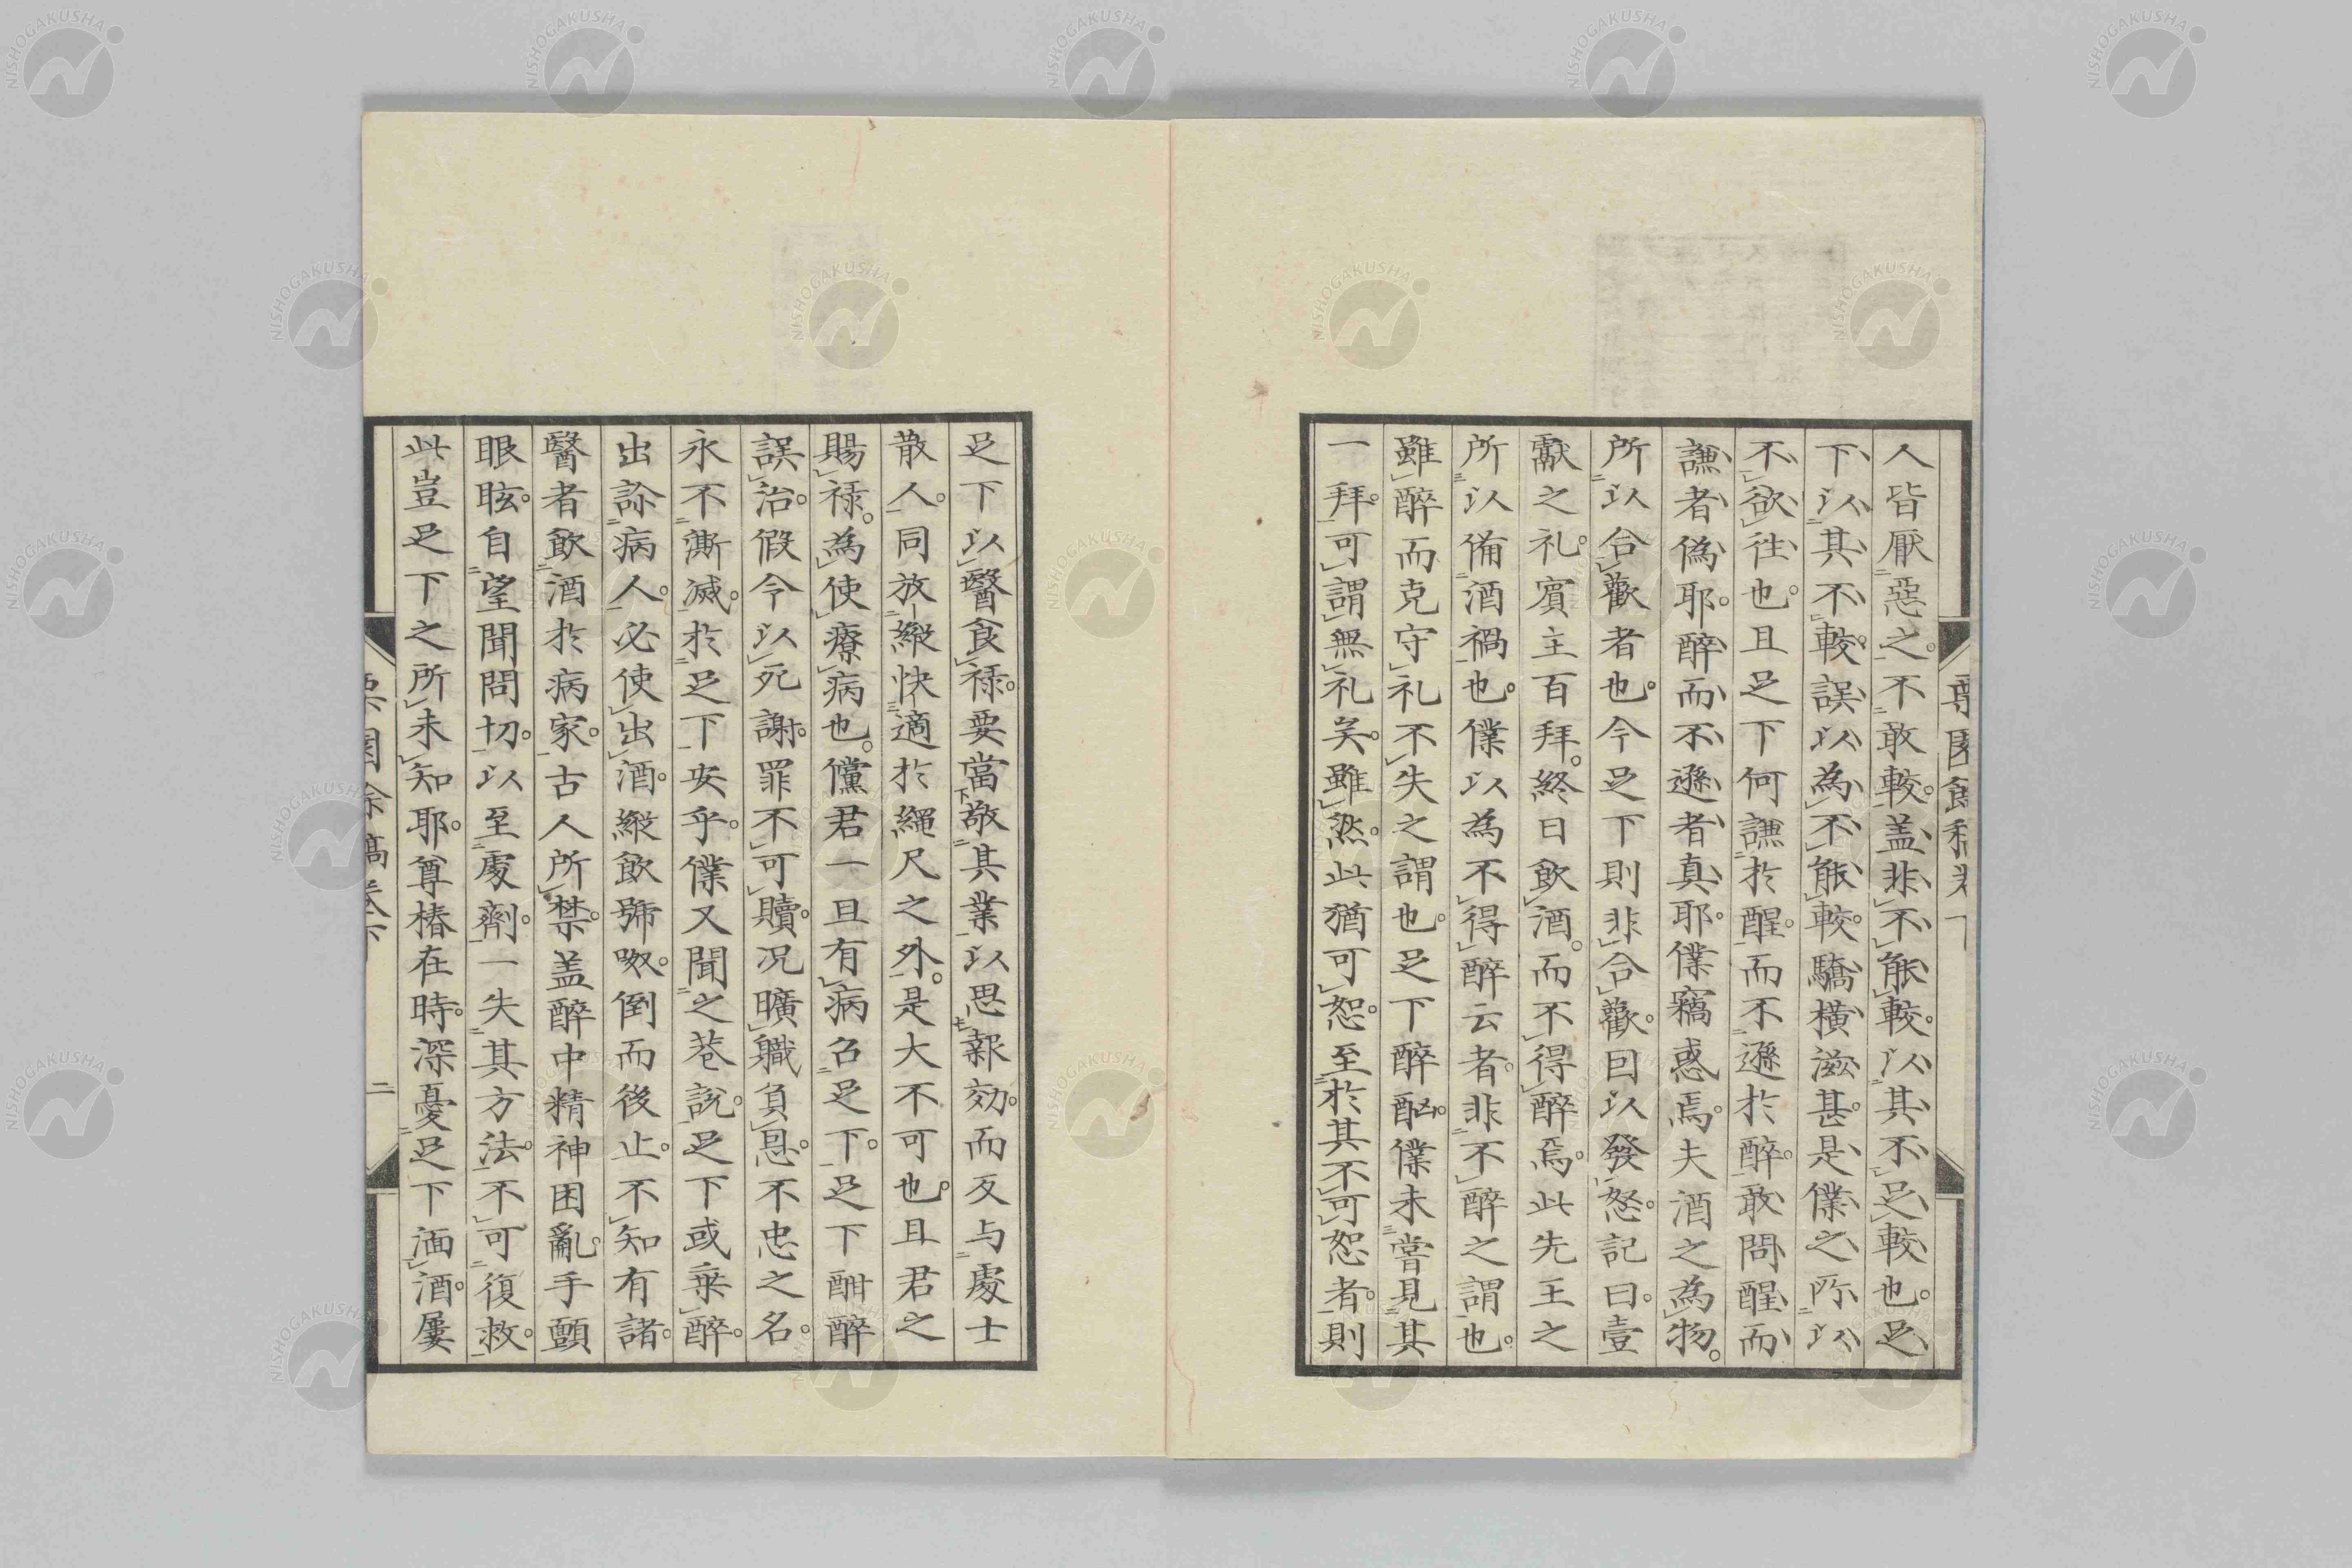 人皆厭惡之。不敢較。盖非不能較。以其不足較也。足
下以其不較。誤以為不能較。驕橫滋甚。是僕之所以
不欲往也。且足下何謙於醒。而不遜於醉。敢問醒而
謙者偽耶。醉而不遜者真耶。僕竊惑焉。夫酒之為物。
所以合歡者也。今足下則非合歡。回以發怒。記曰。壹
獻之礼。賓主百拜。終日飲酒。而不得醉焉。此先王之
所以備酒禍也。僕以為不得醉云者。非不醉之謂也。
雖醉而克守礼不失之謂也。足下醉酗。僕未嘗見其
一拜。可謂無礼矣。雖然。此猶可恕。至於其不可恕者。則
足下以醫食祿。要當敬其業以思報効。而反与處士
散人。同放縱快適於繩尺之外。是大不可也。且君之
賜祿。為使療病也。儻君一旦有病召足下。足下酣醉
誤治。假令以死謝。罪不可贖。況曠職負恩。不忠之名。
永不澌滅。於足下安乎。僕又聞之巷說。足下或乘醉。
出診病人。必使出酒。縱飲號呶。倒而後止。不知有諸。
醫者飲酒於病家。古人所禁。盖醉中精神困亂。手顫
眼眩。自望聞問切。以至處劑。一失其方法。不可復救。
此豈足下之所未知耶。尊椿在時。深憂足下湎酒。屢
園餘稿卷下
二